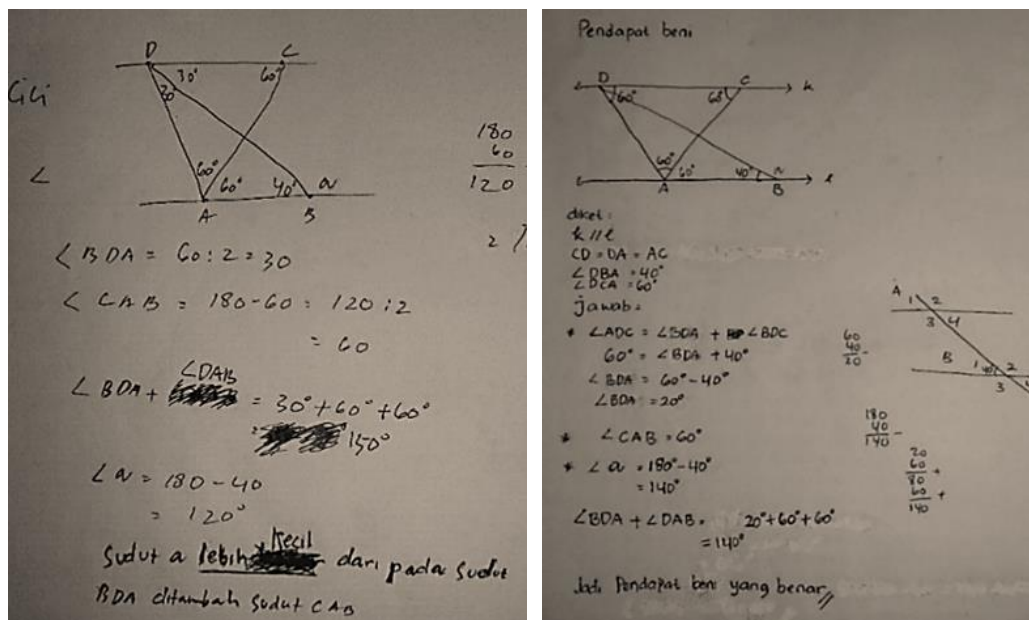 Cici
D
C
30°
60°
30°
180
60
120
60°
60°
40°
a
A
B
∠
∠ BDA = 60 : 2 = 30
∠ CAB = 180-60 = 120 : 2
= 60
∠ BDA + ∠DAB = 30° + 60° + 60°
= 150°
∠ a = 180 - 40
= 120°
Sudut a lebih kecil dari pada sudut
BDA ditambah sudut CAB
Pendapat beni
D
C
k
60°
60°
60°
60°
40°
a
A
B
l
diket :
k // l
CD = DA = AC
∠DBA = 40°
∠DCA = 60°
jawab =
* ∠ADC = ∠BDA + ∠BDC
60° = ∠BDA + 40°
∠BDA = 60° - 40°
∠BDA = 20°
* ∠CAB = 60°
* ∠a = 180° - 40°
= 140°
∠BDA + ∠DAB = 20° + 60° + 60°
= 140°
Jadi Pendapat beni yang benar //
A
1 2
3 4
B
1 40° 2
3
60
40 -
20
180
40 -
140
20
60 +
80
60 +
140